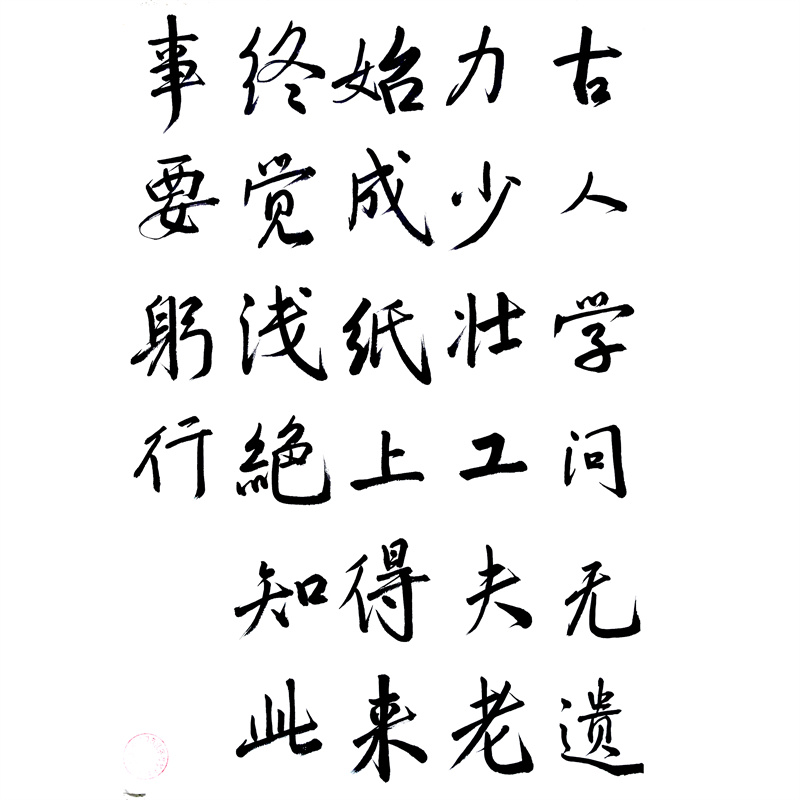 古人学问无遗
力少壮工夫老
始成纸上得来
终觉浅絶知此
事要躬行